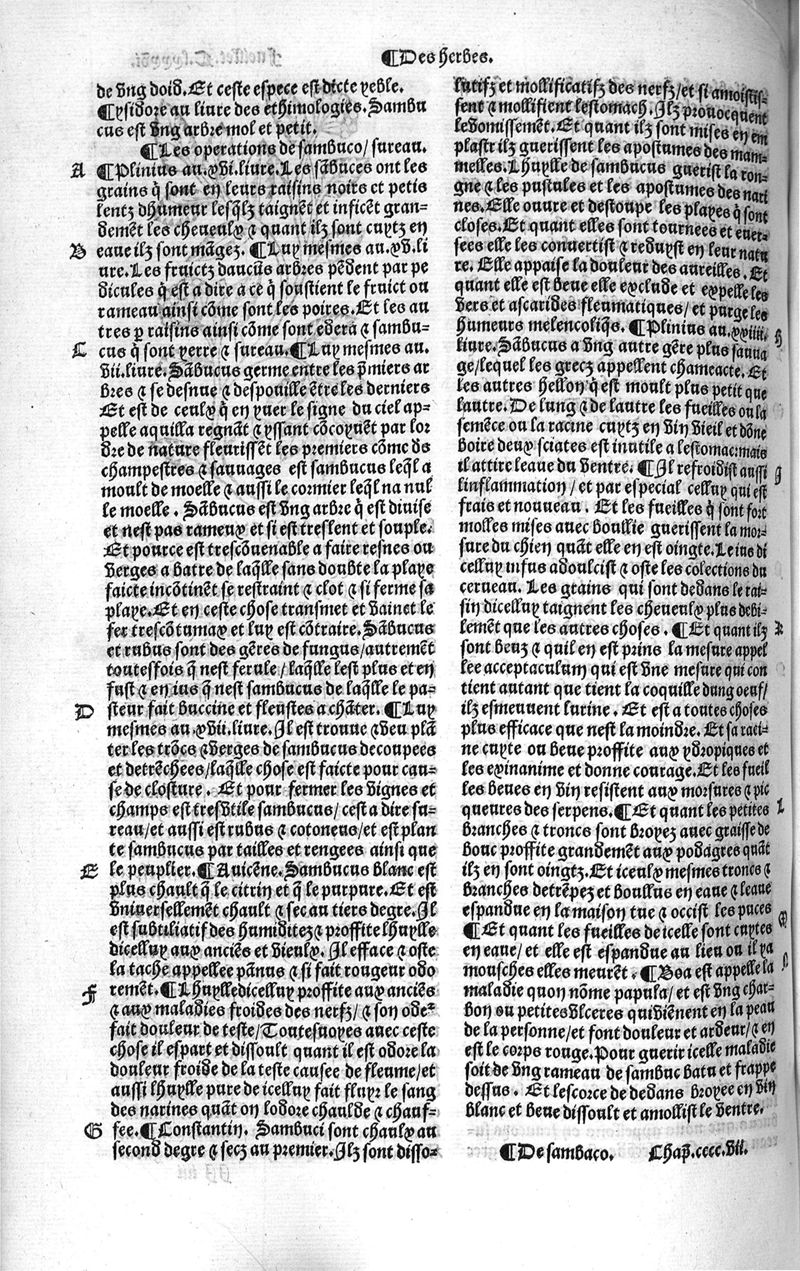 ¶Des herbes.
de vng doid. Et ceste espece est dicte yeble.
¶ysidore au liure des ethimologies. Sambu
cus est vng arbre mol et petit.
¶Les operations de sambuco/ sureau.
A ¶Plinius au .xvi. liure. Les sābuces ont les
grains q̄ sont en leurs raisins noirs et petis
lentz dhumeur lesq̄lz taignēt et infıcēt gran-
demēt les cheueulx ⁊ quant ilz sont cuytz en
B eaue ilz sont māgez. ¶Luy mesmes au .xv. li
ure. Les fruictz daucūs arbres pēdent par pe
dicules q̄ est a dire a ce q̄ soustient le fruict ou
rameau ainsi cōme sont les poires. Et les au
tres p raisins ainsi cōme sont edera ⁊ sambu-
C cus q̄ sont yerre ⁊ sureau. ¶Luy mesmes au .
vii. liure. Sābucus germe entre les p̄miers ar
bres ⁊ se desnue ⁊ despouille ētre les derniers
Et est de ceulx q̄ en yuer le signe du ciel ap-
pelle aquilla regnāt ⁊ yssant cōcoyuēt par lor
dre de nature fleurissēt les premiers cōme ds
champestres ⁊ sauuages est sambucus leq̄l a
moult de moelle ⁊ aussi le cormier leq̄l na nul
le moelle . Sābucus est vng arbre q̄ est diuise
et nest pas rameux et si est treslent et souple.
Et pource est trescōuenable a faire resnes ou
verges a batre de laq̄lle sans doubte la playe
faicte incōtinēt se restraint ⁊ clot ⁊ si ferme sa
playe. Et en ceste chose transmet et vainct le
fer trescōtumax et luy est cōtraire. Sābucus
et rubus sont des gēres de fungus/autremēt
toutessois q̄ nest ferule/laq̄lle lest plus et en
fust ⁊ en ius q̄ nest sambucus de laq̄lle le pa-
D steur fait buccine et fleustes a chāter. ¶Luy
mesmes au .xvii. liure. Il est trouue ⁊ veu plā
ter les trōcs ⁊ verges de sambucus decoupees
et detrēchees/laq̄lle chose est faicte pour cau-
se de closture . Et pour fermer les vignes et
champs est tresvtile sambucus/ cest a dire su-
reau/et aussi est rubus ⁊ cotoneus/et est plan
te sambucus par tailles et rengees ainsi que
E le peuplier. ¶Auicēne. Sambucus blanc est
plus chault q̄ le citrin et q̄ le purpure. Et est
vniuersellemēt chault ⁊ sec au tiers degre. Il
est subtiliatif des humiditez ⁊ proffite lhuylle
dicelluy aux anciēs et vieulx. Il efface ⁊ oste
la tache appellee pānus ⁊ si fait rougeur odo
F remēt. ¶Lhuylle dicelluy proffite aux anciēs
⁊ aux maladies froides des nerfz/⁊ son ode
fait douleur de teste/Toutesuoyes auec ceste
chose il espart et dissoult quant il est odore la
douleur froide de la teste causee de fleume/et
aussi lhuylle pure de icelluy fait fluyr le sang
des narines quāt on lodore chaulde ⁊ chauf-
G fee. ¶Constantin. Sambuci sont chaulx au
second degre ⁊ secz au premier. Ilz sont disso-
lutifz et mollificatifz des nerfz/et si amoistis-
sent ⁊ mollifient lestomach. Ilz prouocquent
le vomissemēt. Et quant ilz sont mises en em
plastr ilz guerissent les apostumes des mam-
melles. Lhuylle de sambucus guerist la ron-
gne ⁊ les pustules et les apostumes des nari
nes. Elle ouure et destoupe les playes q̄ sont
closes. Et quant elles sont tournees et euer-
sees elle les conuertist ⁊ reduyst en leur natu
re. Elle appaise la douleur des aureilles. Et
quant elle est beue elle exclude et expelle les
vers et ascarides fleumatiques/ et purge les
humeurs melencoliq̄s. ¶Plinius au .xxiiii. H
liure. Sābucus a vng autre gēre plus sauua
ge/lequel les grecz appellent chameacte. Et
les autres helion q̄ est moult plus petit que
lautre. De lung ⁊ de lautre les fueilles ou la
semēce ou la racine cuytz en vin vieil et dōne
boire deux sciates est inutile a lestomac: mais
il attire leaue du ventre. ¶Il refroidist aussi J
linflammation/ et par especial celluy qui est
frais et nouueau . Et les fueilles q̄ sont fort
molles mises auec boullie guerissent la mor-
sure du chien quāt elle en est oingte. Le ius di
celluy infus adoulcist ⁊ oste les colections du
cerueau. Les grains qui sont dedans le rai-
sin dicelluy taignent les cheueulx plus debi-
lemēt que les autres choses . ¶Et quant ilz K
sont beuz ⁊ quil en est prins la mesure appel
lee acceptaculum qui est vne mesure qui con
tient autant que tient la coquille dung oeuf/
ilz esmeuuent lurine. Et est a toutes choses
plus efficace que nest la moindre. Et sa raci-
ne cuyte ou beue proffite aux ydropiques et
les exinanime et donne courage. Et les fueil
les beues en vin resistent aux morsures ⁊ pic
queures des serpens. ¶Et quant les petites L
branches ⁊ troncs sont broyez auec graisse de
bouc proffite grandemēt aux podagres quāt
ilz en sont oingtz. Et iceulx mesmes troncs ⁊
branches detrēpez et boullus en eaue ⁊ leaue
espandue en la maison tue ⁊ occist les puces
¶Et quant les fueilles de icelle sont cuytes M
en eaue/ et elle est espandue au lieu ou il ya
mousches elles meurēt. ¶Boa est appelle la
maladie quon nōme papula/ et est vng char-
bon ou petites vlceres qui viēnent en la peau
de la personne/et font douleur et ardeur/⁊ en
est le corps rouge. Pour guerir icelle maladie
soit de vng rameau de sambuc batu et frappe
dessus . Et lescorce de dedans broyee en vin
blanc et beue dissoult et amollist le ventre.
¶De sambaco. Chap̄. cccc. vii.